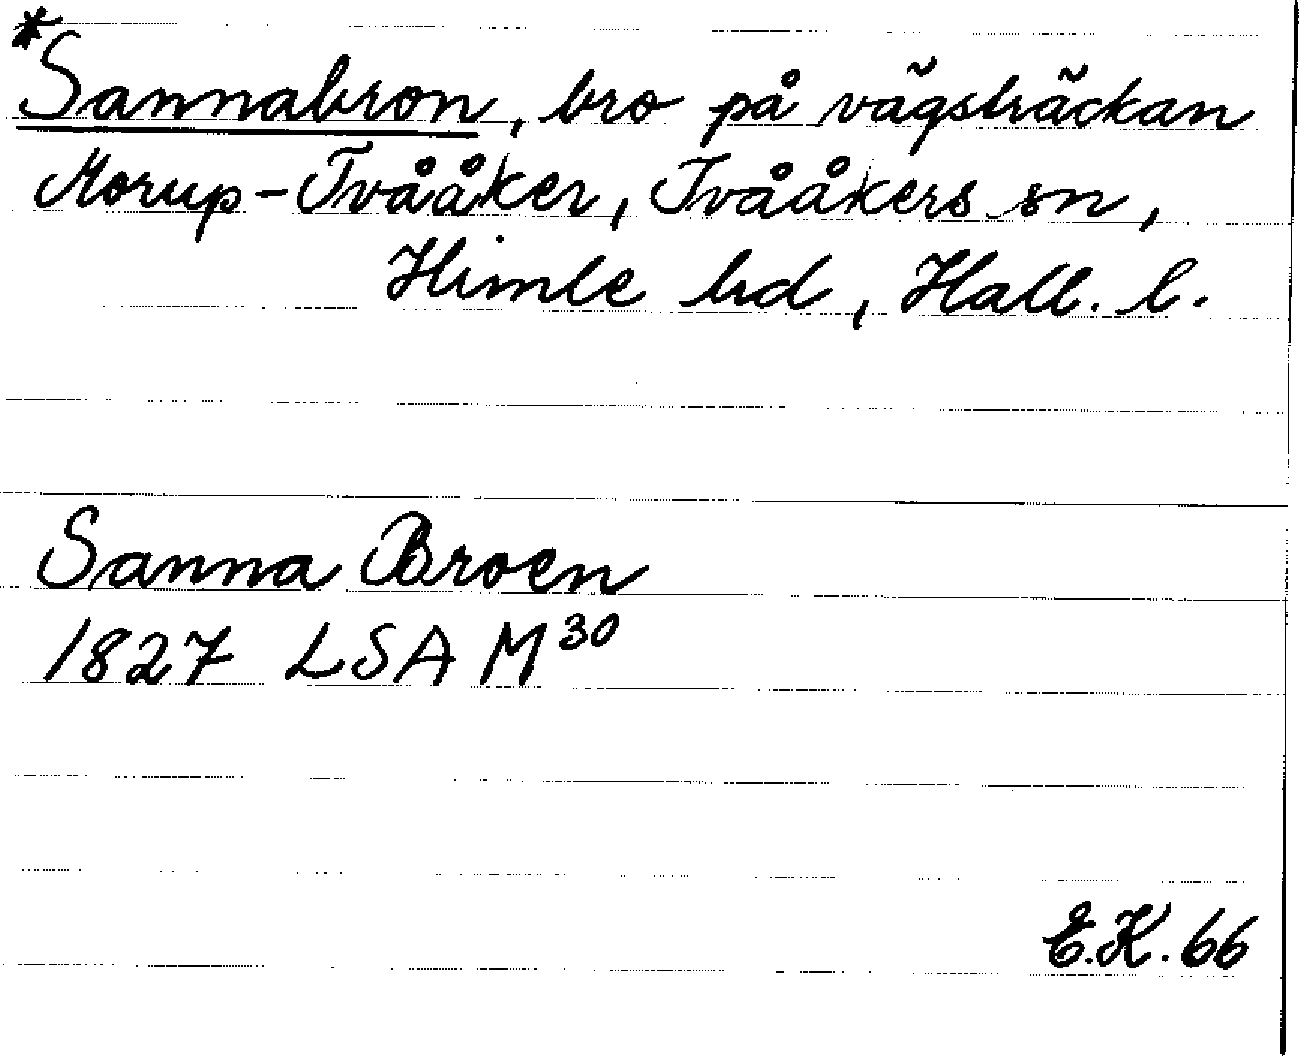 *Sannabron, bro på vägsträckan
Morup-Tvååker, Tvååkers sn,
Himle hd, Hall. l.
Sanna Broen
1827 LSA M³⁰
E.K. 66